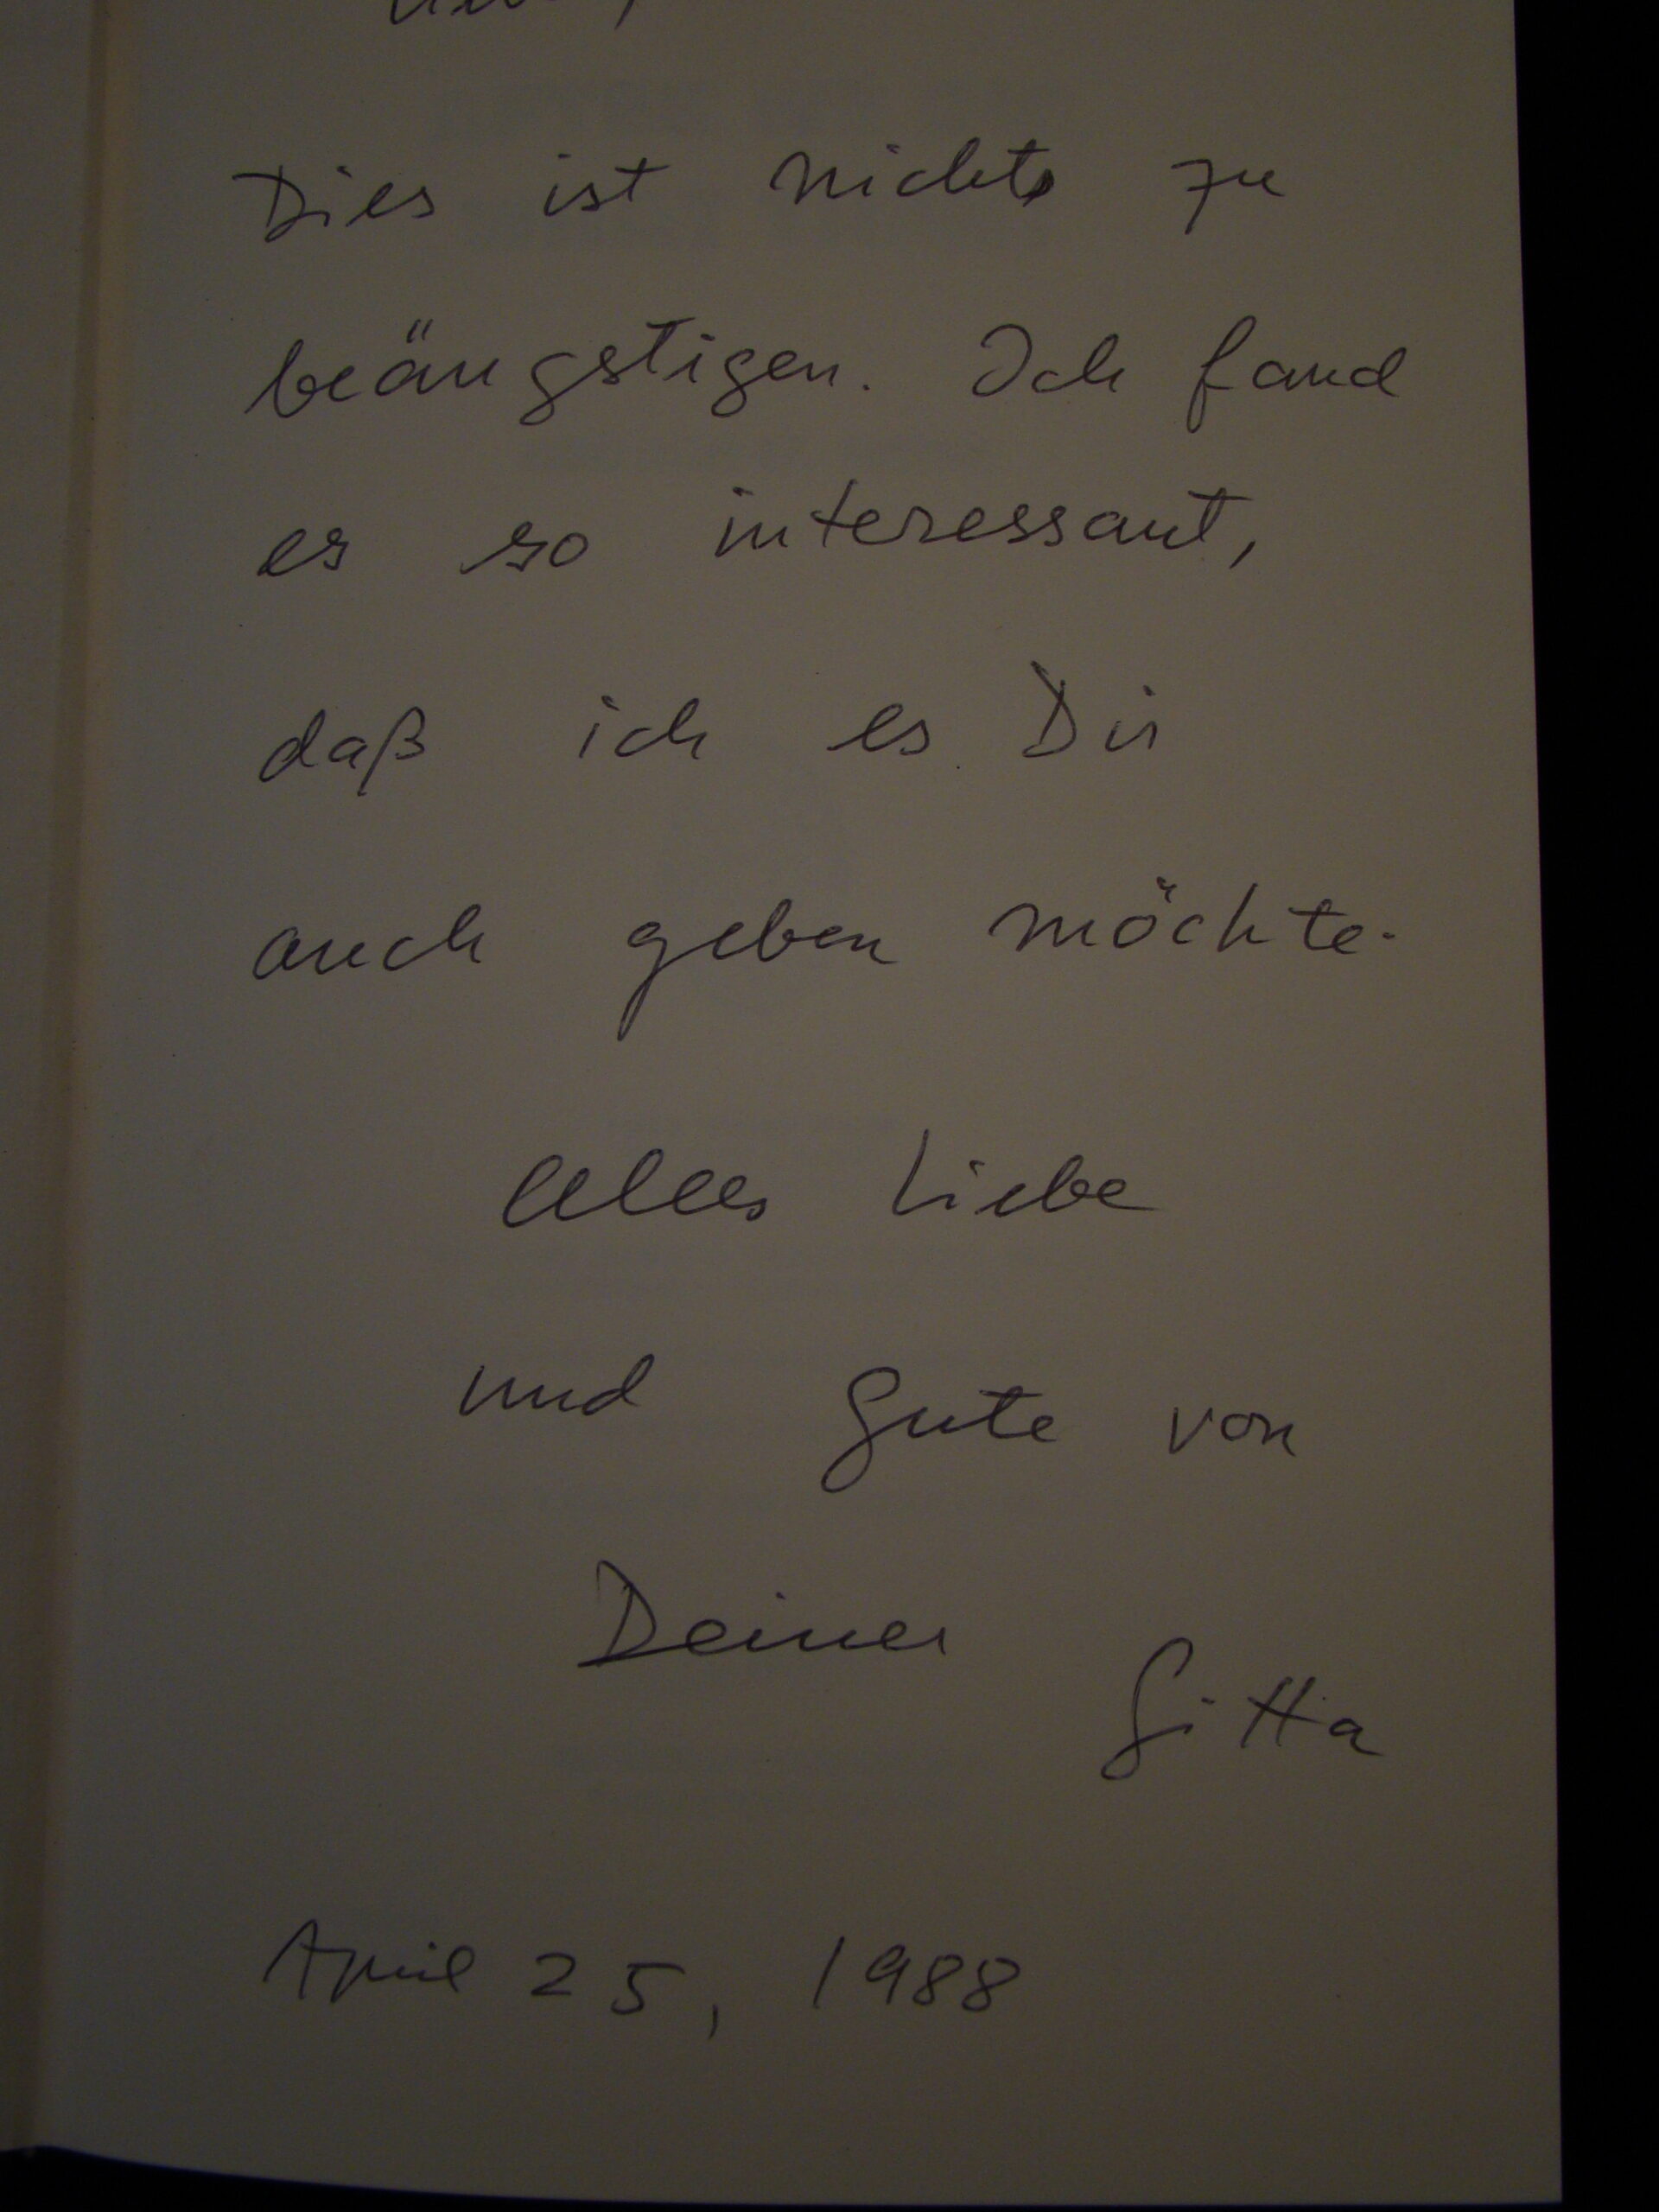 Dies ist nichts zu
beängstigen. Ich fand
es so interessant,
daß ich es Dir
auch geben möchte.
Alles Liebe
und Gute von
Deiner
Gitta
April 25, 1988